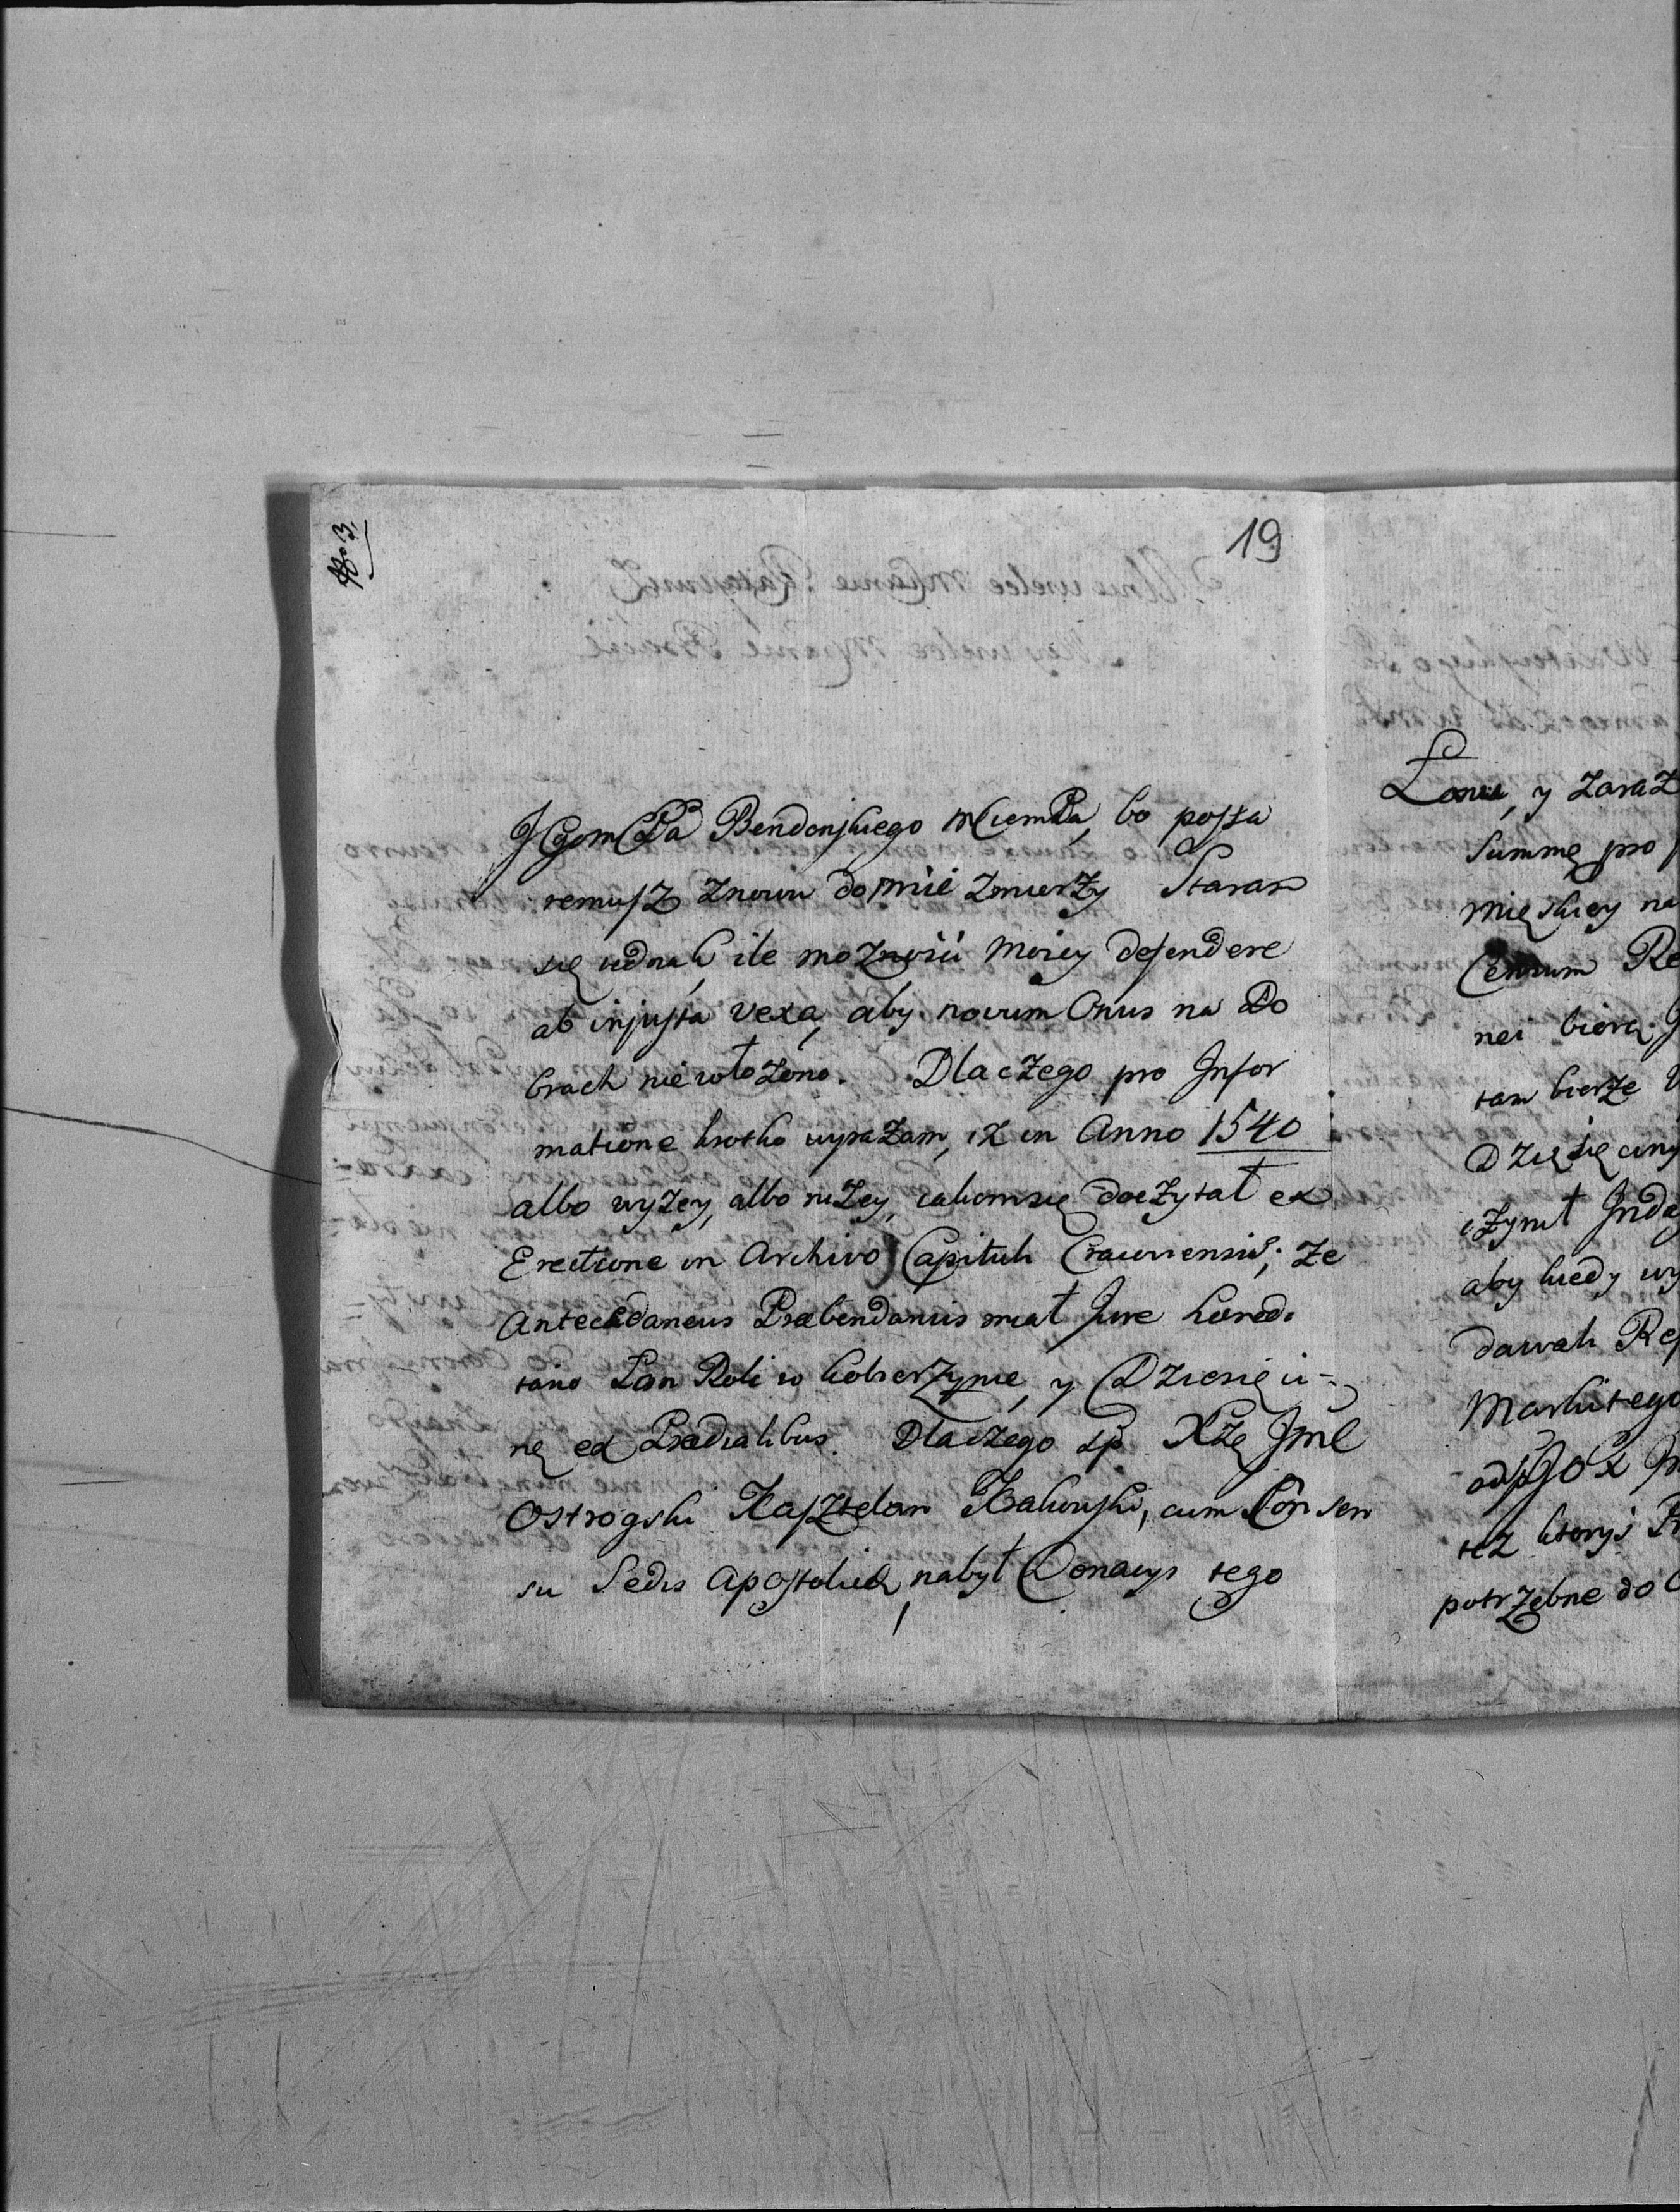 19
No 3.
JGomCPa Bendonskiego mciemPa, bo posta
remusz znowu do mnie zmierzy Staram
się iednak ile moznosci moiey defendere
ab injusta vexa, aby novum Onus na Do
brach nie włożono. Dlaczego pro Infor
matione krotko wyrażam, iż in Anno 1540
albo wyżey, albo niżey, iakom się doczytał ex
Erectione in Archivo Capituli Cracoviensis; że
Antecedaneus Præbendarius miał Jure hæredi
tario Łan Roli w Kobierzynie, y Dziesięci-
nę ex Prædialibus. Dlaczego sp Xże Jmć
Ostrogski Kasztelan Krakowski, cum Consen
su Sedis Apostolicæ, nabył Donacyi tego
Łanu, y zaraz
Summę pro
Mieskiey na
Censum Re
nei biorą. J
tam bierze
Dziesięciny
czynił Inda
aby kiedy wy
dawali Re
Markitego
też ktorys
potrzebne do